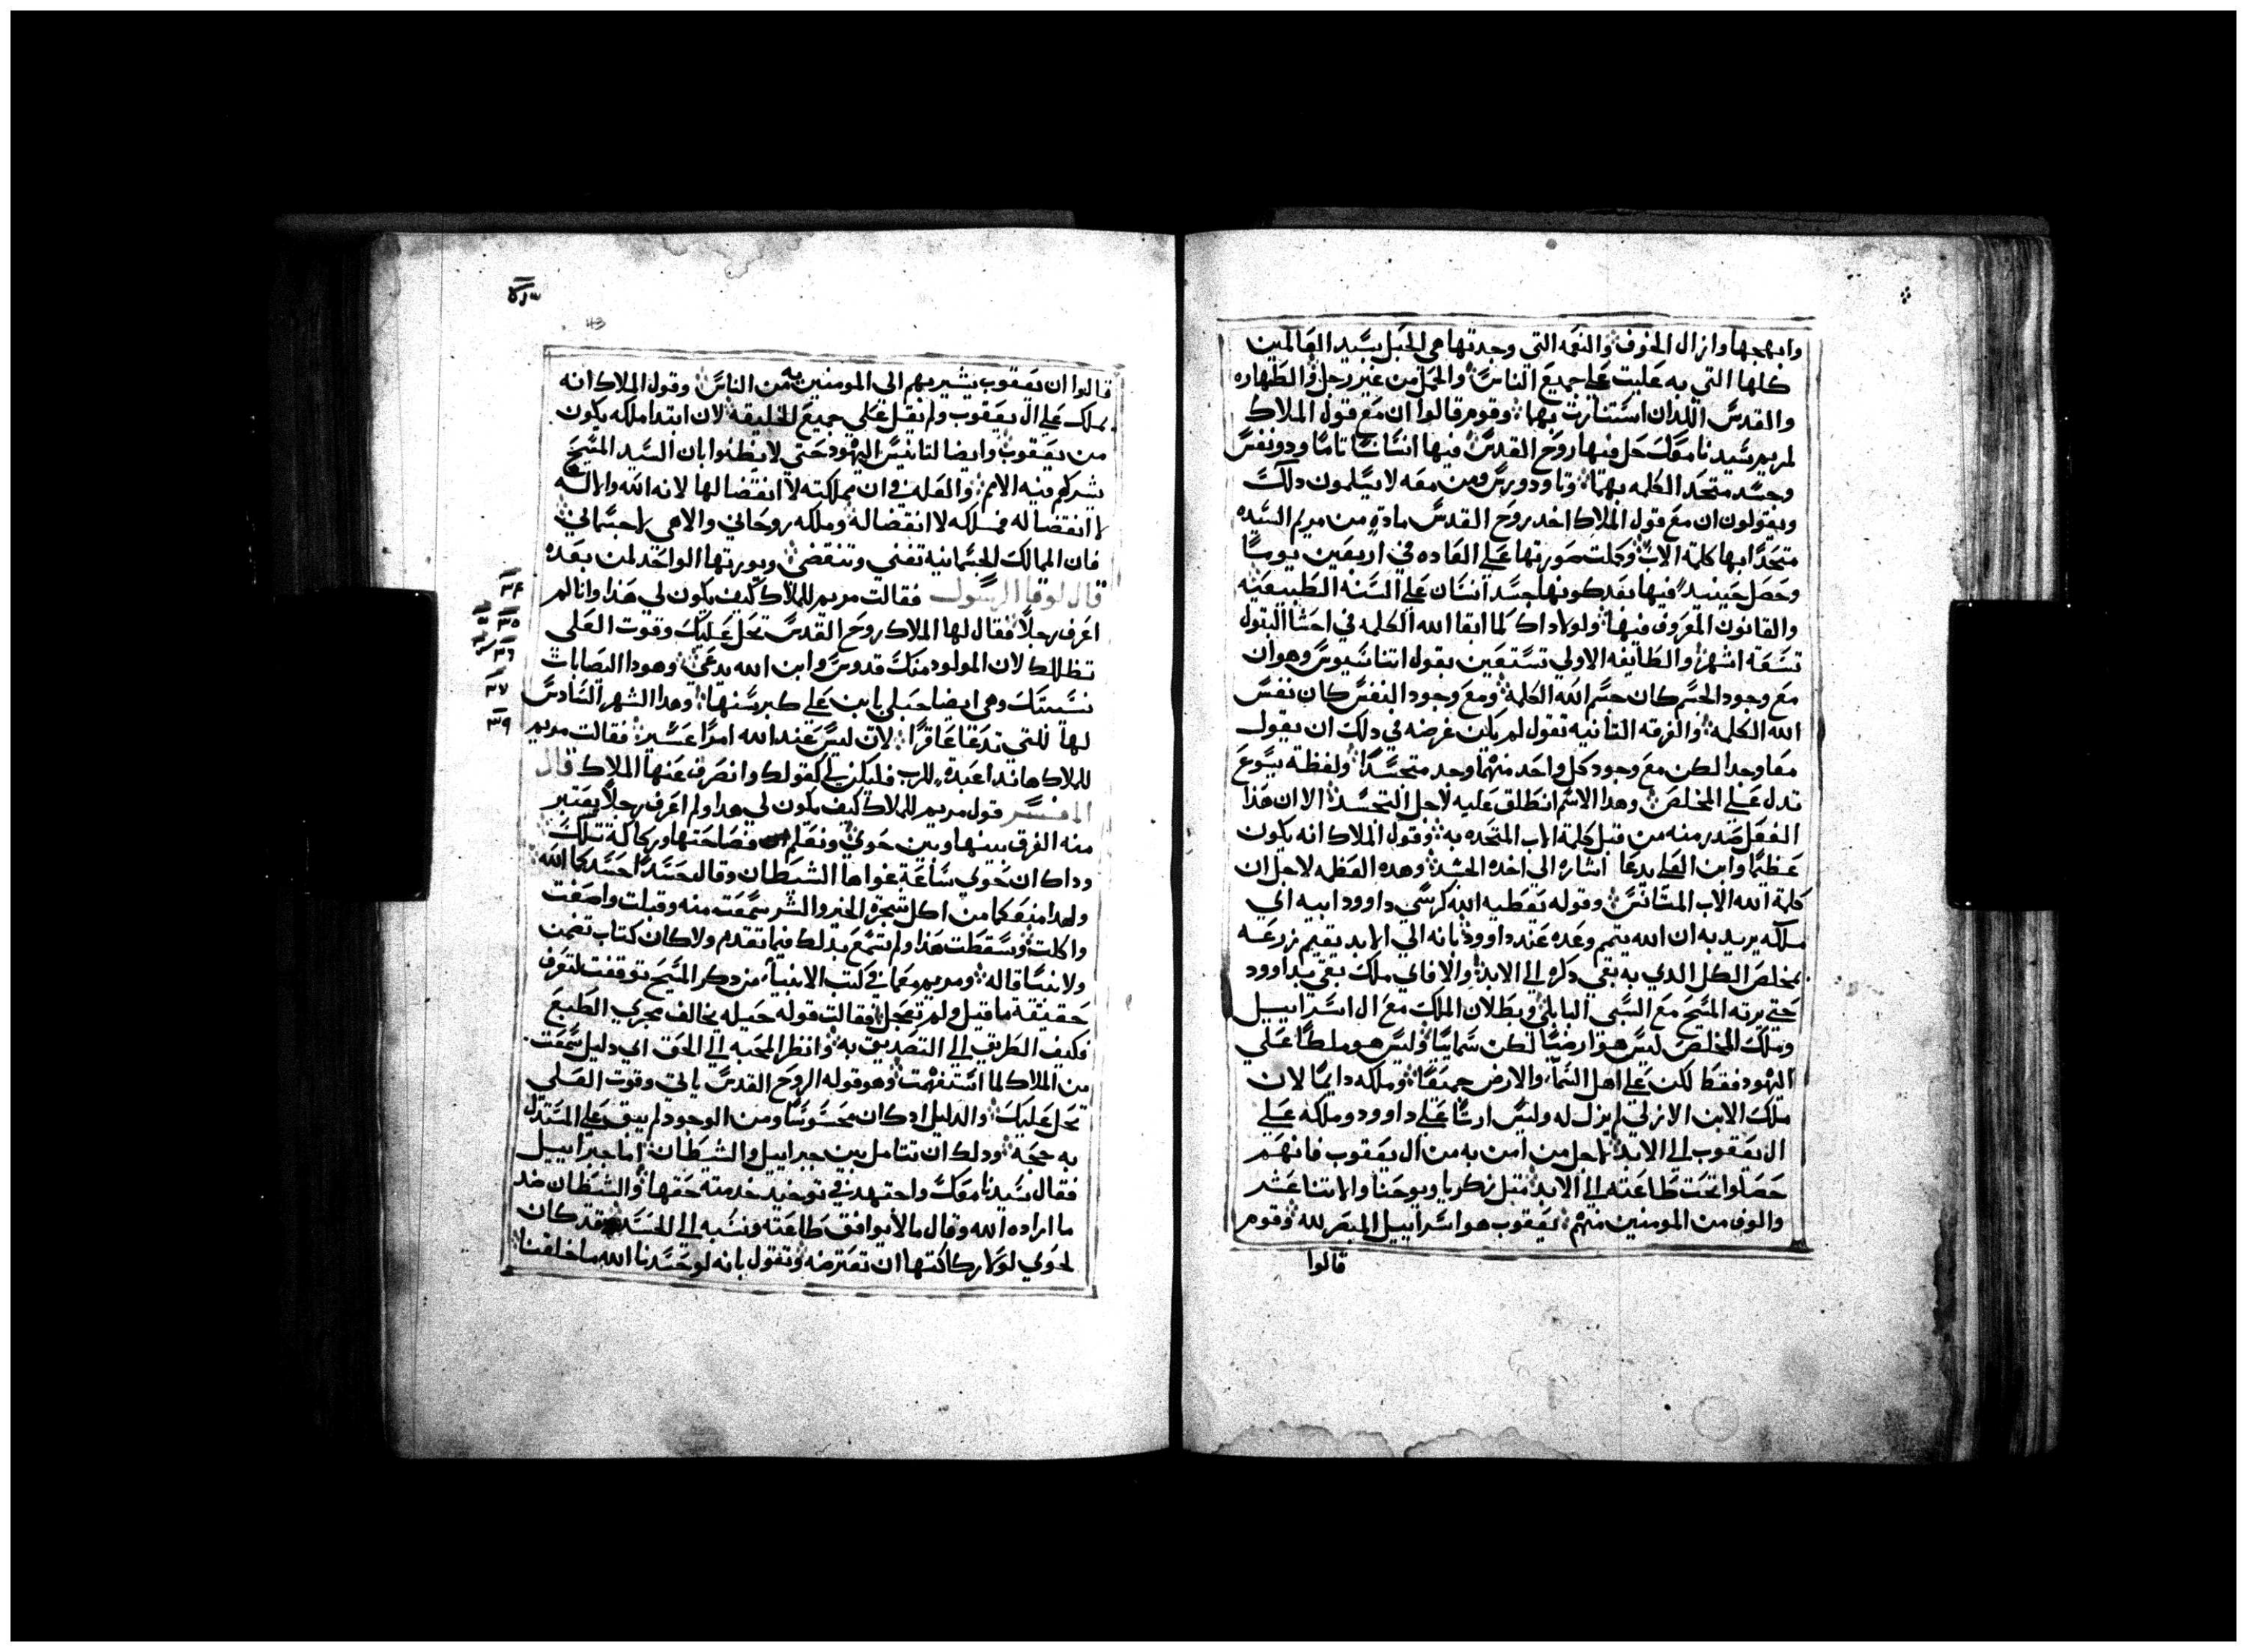 وابهجها وازال الخوف والنعمه التي وجدتها هي الحبل بسيد العالمين
كلها التي به علت على جميع الناس والحبل من غير رجل والطهاره
والقدس اللدان استنارت بهما وقوم قالوا ان مع قول الملاك
لمريم سيدنا معك حل فيها روح القدس فيها انسانا تاما ودو نفس
وجسد متحد الكلمه بهما وتاودورس ومن معه لا يسلمون دلك
ويقولون ان مع قول الملاك اخد روح القدس مادة من مريم السيده
متحدا بها كلمة الاب وكملت صورتها على العاده في اربعين يوما
وحصل حينيد فيها بعد كونها جسد انسان على السنه الطبيعيه
والقانون المعروف فيها ولولا داك لما ابقا الله الكلمه في احشا البتول
تسعة اشهر والطايفه الاولي تستعين بقول اتناسيوس وهو ان
مع وجود الجسم كان جسم الله الكلمة ومع وجود النفس كان نفس
الله الكلمة والفرقه التانيه تقول لم يكن غرضه في دلك ان يقول
معا وجدا لكن مع وجود كل واحد منهما وجد متجسدا ولفظة يسوع
تدل على المخلص وهدا الاسم انطلق عليه لاجل التجسد الا ان هدا
الفعل صدر منه من قبل كلمة الاب المتحده به وقول الملاك انه يكون
عظيما وابن العلي يدعا اشاره الى اخده الجسد وهده العظمه لاجل ان
كلمة الله الاب المتانس وقوله يعطيه الله كرسي داوود ابيه اي
ملكه يريد به ان الله يتمم وعده عند داوود بانه الى الابد يقيم زرعه
بمخلص الكل الدي به بقي دكره الى الابد والا فاي ملك بقي بداوود
حتى يرته المسيح مع السبي البابلي وبطلان الملك مع ال اسراييل
وملك المخلص ليس هو ارضيا لكن سماييا وليس هو ملطا على
اليهود فقط لكن على اهل السماء والارض جميعا وملكه دايما لان
ملك الابن الازلي لم يزل له وليس ارتا على داوود وملكه على
ال يعقوب الى الابد لاجل من امن به من ال يعقوب فانهم
حصلوا تحت طاعته الى الابد متل زكريا ويوحنا والاتنا عشر
والوف من المومنين منهم يعقوب هو اسراييل المبصر لله وقوم
قالوا
43
قالوا ان يعقوب يشير بهم الى المومنين به من الناس وقول الملاك انه
يملك على ال يعقوب ولم يقل على جميع الخليقه لان ابتدا ملكه يكون
من يعقوب وايضا لتانيس اليهود حتى لا يظنوا بان السيد المسيح
يشركهم فيه الامم والعله في ان مملكته لا انقضا لها لانه الله والاله
لا انقضا له فملكه لا انقضا له وملكه روحاني والاهي لا جسماني
فان الممالك الجسمانيه تفني وتنقضي ويورتها الواحد لمن بعده
قال لوقا الرسول فقالت مريم للملاك كيف يكون لي هدا وانا لم
اعرف رجلا فقال لها الملاك روح القدس تحل عليك وقوت العلي
تظللك لان المولود منك قدوس وابن الله يدعي وهودا اليصابات
نسيبتك وهي ايضا حبلي بابن على كبر سنها وهدا الشهر السادس
لها للتي تدعا عاقرا لان ليس عند الله امرا عسير فقالت مريم
للملاك هاندا عبدة للرب فليكن لي كقولك وانصرف عنها الملاك قال
المفسر قول مريم للملاك كيف يكون لي هدا ولم اعرف رجلا يعتبر
منه الفرق بينها وبين حوي ونعلم فصاحتها وركاكة تلك
وداك ان حوي ساعة غواها الشيطان وقال حسدا حسدكما الله
ولهدا منعكما من اكل شجرة الخير والشر سمعت منه وقبلت واصغت
واكلت وسقطت هدا ولم تسمع بدلك فيما تقدم ولا كان كتاب تضمن
ولا نبيا قاله ومريم معما في كتب الانبياء من دكر المسيح توقفت لتعرف
حقيقة ما قيل ولم تعجل فقالت قوله حبله يخالف مجري الطبع
فكيف الطريق الى التصديق به وانظر المحبه الى الحق اي دليل سمعت
من الملاك لما استفهمت وهو قوله الروح القدس ياتي وقوت العلي
تحل عليك والدليل ادا كان محسوسا ومن الوجود لم يبق على المستدل
به حجة ودلك ان تتامل بين جبراييل والشيطان اما جبراييل
فقال سيدنا معك واجتهد في توحيد خدمته حقها والشيطان ضد
ما اراده الله وقال ما لا يوافق طاعته ونسبه الى الحسد وقد كان
لحوي لولا ركاكتها ان تعترضه وتقول بانه لو حسدنا الله ما خلقنا
٣٤
٣٥
٣٦
٣٧
٣٩